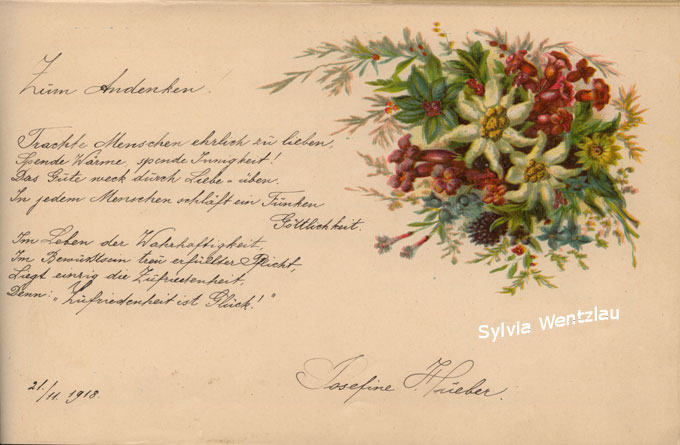 Zum Andenken.
Trachte Menschen ehrlich zu lieben,
Spende Wärme, spende Innigkeit!
Das Gute weck durch Liebe-üben.
In jedem Menschen schläft ein Funken
Göttlichkeit.
Im Leben der Wahrhaftigkeit,
Im Bewußtsein treu erfüllter Pflicht,
Liegt einzig die Zufriedenheit,
Denn: „Zufriedenheit ist Glück!"
Sylvia Wentzlau
Josefine Hueber.
21./11. 1918.